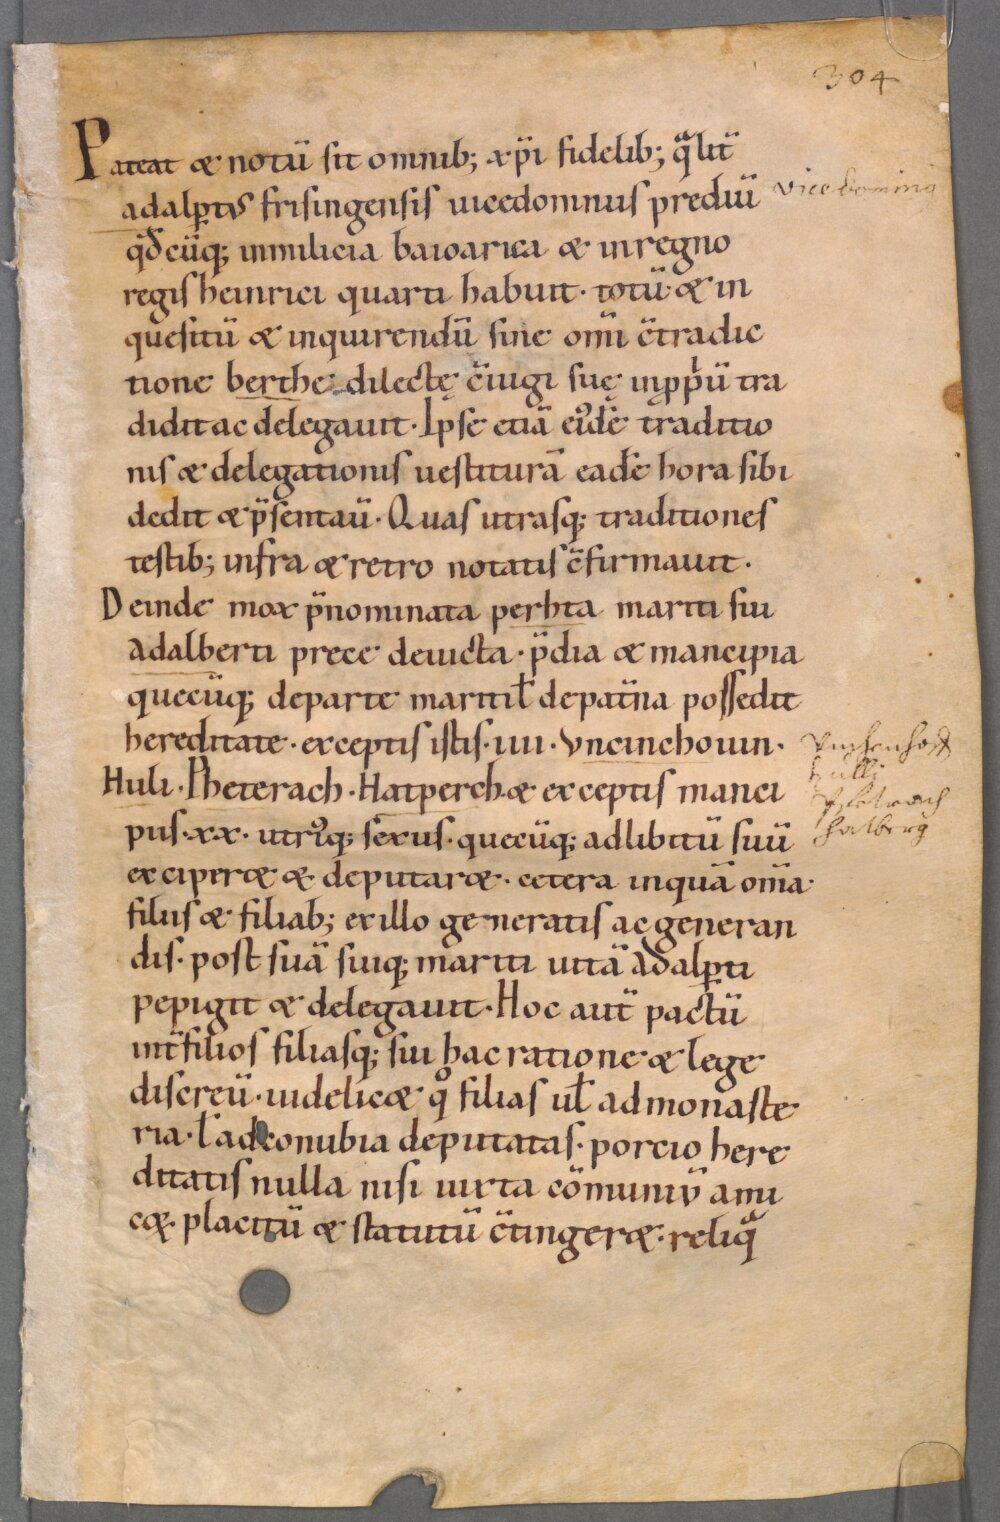 304
Pateat & notū sit omnib; xp̄i fidelib; qͣlit̄
adalp̲tꝰ frisingensis uicedomnus prediū
vicedominꝰ
qđcūq; inmilicia baioarica & inregno
regis heinrici quarti habuit · totū · & in
quesitū & inquirendū sine om̄i c̄tradic
tione berthe dilectę c̄iugi suę inp̲pͥū tra
didit ac delegauit · Ipse etiā eiꝰdē traditio
nis & delegationis uestiturā eadē hora sibi
dedit & p̄sentaū · Quas utrasq; traditiones
testib; infra & retro notatis c̄firmauit ·
Deinde mox p̄nominata perhta mariti sui
adalberti prece deuicta · p̄dia & mancipia
quecūq; departe maritiꝉ depat̄na possedit
hereditate · exceptis istis · iiii · Vncinchouin ·
Huli · Pheterach · Hatperch · & exceptis manci
hulli
hatberg
piis · xx · utriꝰq; sexus · quecūq; adlibitū suū
exciper& & deputar& · cetera inquā om̄ia
filiis & filiab; exillo generatis ac generan
dis · post suā suiq; mariti uitā adalp̲ti
pepigit & delegauit · Hoc aut̄ pactū
int̄filios filiasq; sui hac ratione & lege
discreū · uidelic& qͦ filias uꝉ admonaste
ria · ꝉ ad conubia deputatas · porcio here
ditatis nulla nisi iuxta cōmuniū ami
c& · placitū & statutū c̄tinger& · reliqͣ